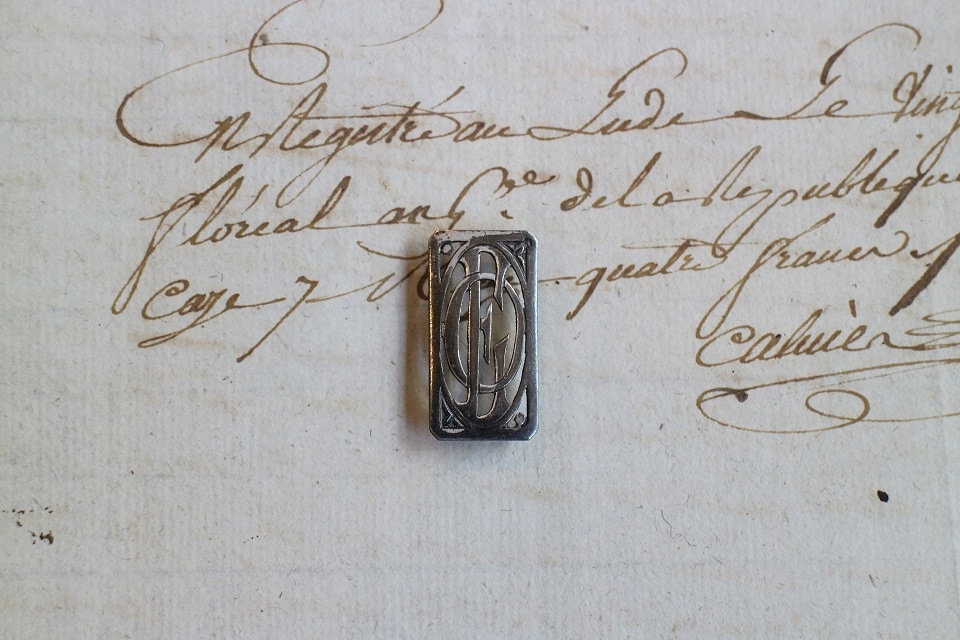 Enregistré au Lude Le Ving
floréal an 6.e de la Republique
Case 7 quatre francs
Cahier